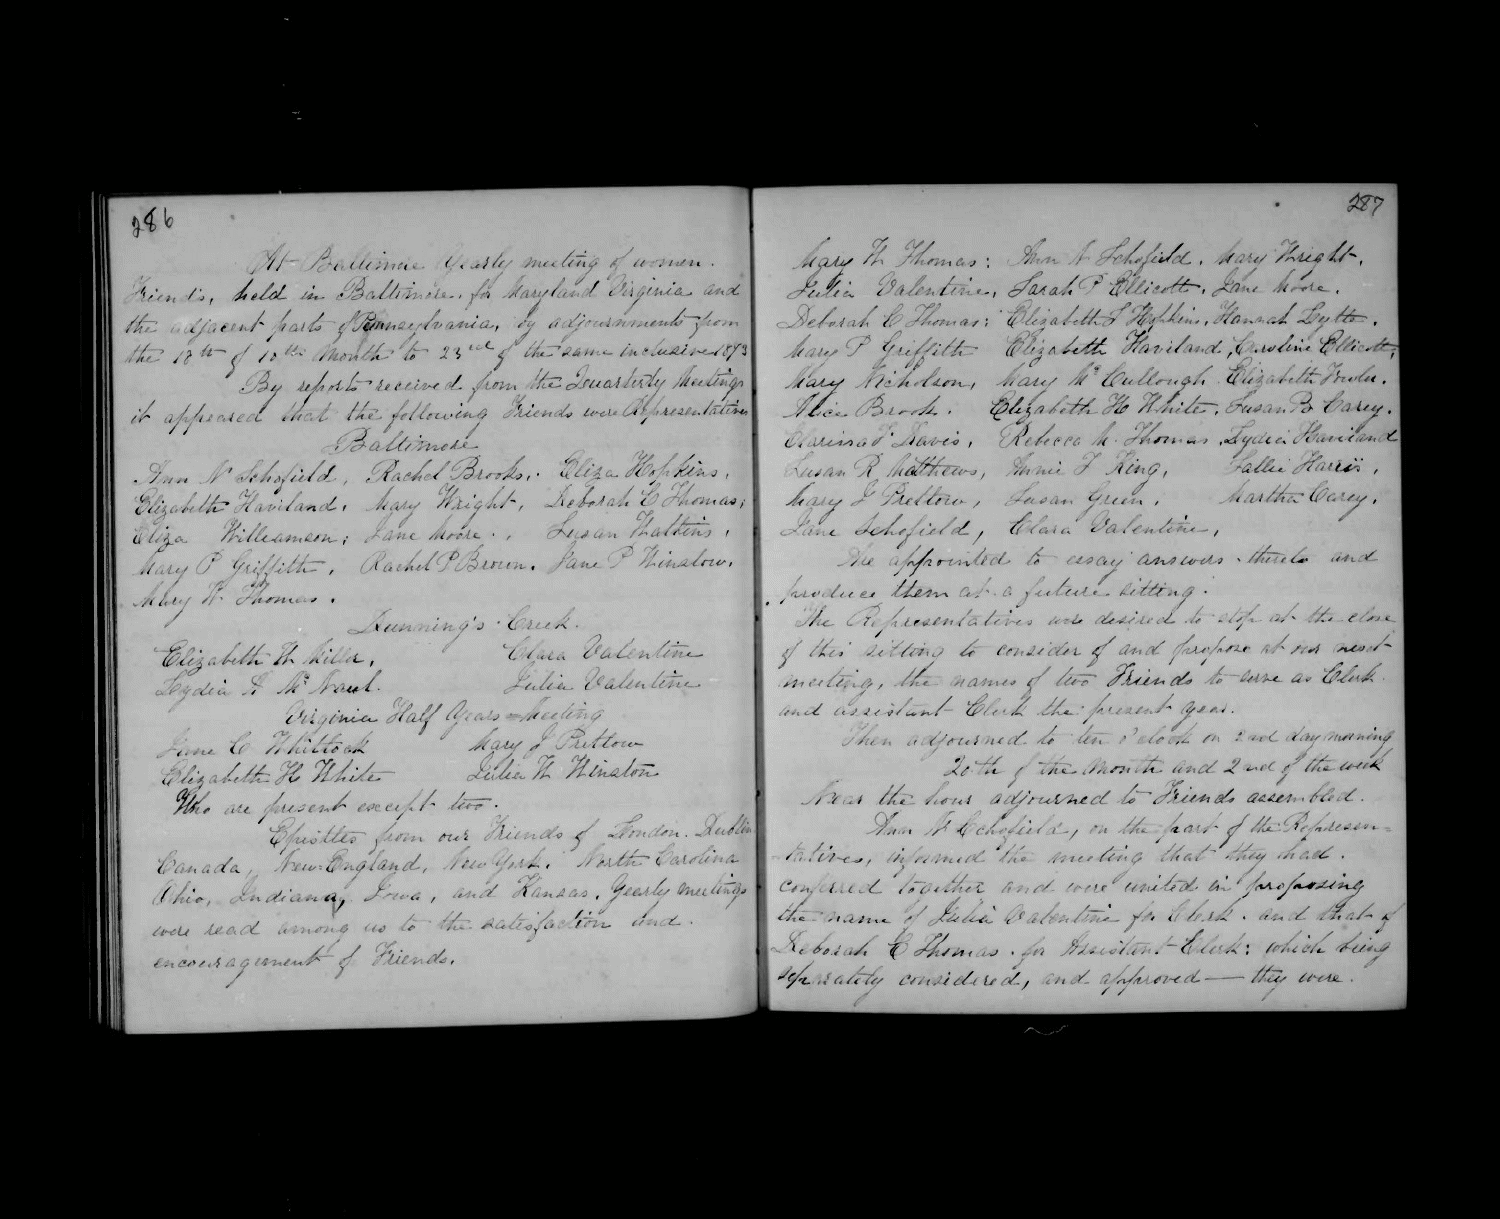 286
At Baltimore Yearly meeting of women.
Friends, held in Baltimore, for Maryland Virginia and
the adjacent parts of Pennsylvania, by adjournments from
the 18th of 10th Month to 23rd of the same inclusive 1873
By reports received from the Quarterly Meetings
it appeared that the following Friends were Representatives
Baltimore
Ann N Schofield, Rachel Brooks, Eliza Hopkins,
Elizabeth Haviland, Mary Wright, Deborah C Thomas;
Eliza Williamson; Jane Moore, Susan Watkins,
Mary P Griffith, Rachel P Brown, Jane P Winslow,
Mary W. Thomas.
Dunning's Creek.
Elizabeth W Miller, Clara Valentine
Lydia A McNaul. Julia Valentine
Virginia Half Years Meeting
Jane C Whitlock Mary J Pretlow
Elizabeth H White Julia W Winston
Who are present except two.
Epistles from our Friends of London. Dublin
Canada, New England, New York, North Carolina
Ohio, Indiana, Iowa, and Kansas, Yearly meetings
were read among us to the satisfaction and
encouragement of Friends.
287
Mary W Thomas: Ann N Schofield, Mary Wright,
Julia Valentine, Sarah P Ellicott, Jane Moore.
Deborah C Thomas: Elizabeth T Hopkins, Hannah Lytle.
Mary P Griffith Elizabeth Haviland, Caroline Ellicott;
Mary Nicholson, Mary McCullough Elizabeth Fowler.
Alice Brook. Elizabeth H White, Susan B Carey.
Clarissa F Davis, Rebecca M. Thomas, Lydia Haviland
Susan R Matthews, Annie F King, Sallie Harris,
Mary J Pretlow, Susan Green, Martha Carey,
Jane Schofield, Clara Valentine,
Are appointed to essay answers thereto and
produce them at a future sitting.
The Representatives were desired to stop at the close
of this sitting to consider of and propose at our next
meeting, the names of two Friends to serve as Clerk
and assistant Clerk the present year.
Then adjourned to ten o'clock on 2nd day morning
20th of the month and 2nd of the week
Near the hour adjourned to Friends assembled.
Ann N Schofield, on the part of the Represen=
tatives, informed the meeting that they had
conferred together and were united in proposing
the name of Julia Valentine for Clerk. and that of
Deborah C Thomas. for Assistant Clerk: which being
separately considered, and approved — they were.